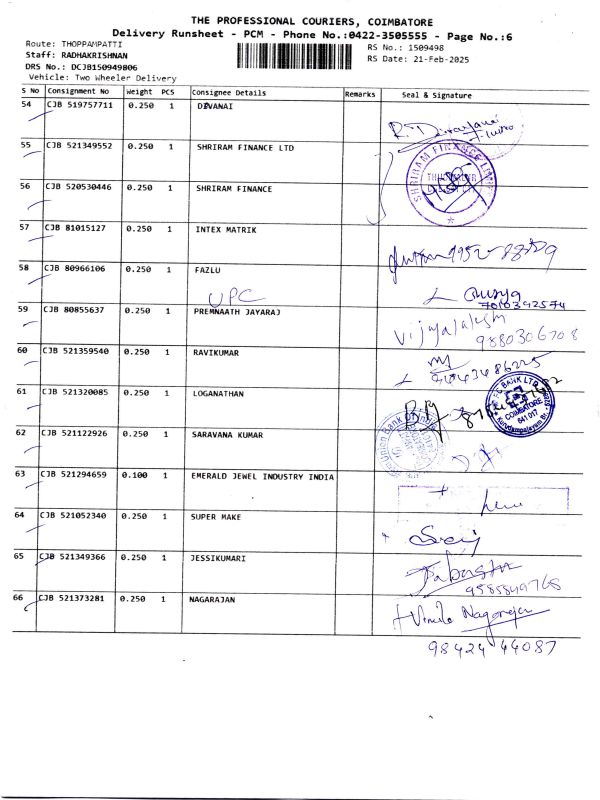 THE PROFESSIONAL COURIERS, COIMBATORE
Delivery Runsheet - PCM - Phone No.:0422-3505555 - Page No.:6
Route: THOPPAMPATTI
RS No.: 1509498
Staff: RADHAKRISHNAN
RS Date: 21-Feb-2025
DRS No.: DCJB150949806
Vehicle: Two Wheeler Delivery
S No Consignment No Weight PCS Consignee Details Remarks Seal & Signature
54 CJB 519757711 0.250 1 DEVANAI
55 CJB 521349552 0.250 1 SHRIRAM FINANCE LTD
SHRIRAM FINANCE
56 CJB 520530446 0.250 1 SHRIRAM FINANCE
57 CJB 81015127 0.250 1 INTEX MATRIK
58 CJB 80966106 0.250 1 FAZLU
UPC
7010392574
59 CJB 80855637 0.250 1 PREMNAATH JAYARAJ
9880306708
60 CJB 521359540 0.250 1 RAVIKUMAR
61 CJB 521320085 0.250 1 LOGANATHAN
BANK LTD
COIMBATORE
641 017
62 CJB 521122926 0.250 1 SARAVANA KUMAR
Union Bank
63 CJB 521294659 0.100 1 EMERALD JEWEL INDUSTRY INDIA
64 CJB 521052340 0.250 1 SUPER MAKE
65 CJB 521349366 0.250 1 JESSIKUMARI
9585849768
66 CJB 521373281 0.250 1 NAGARAJAN
98424 44087